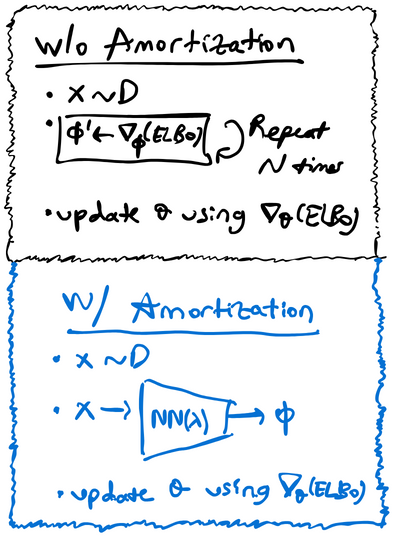 w/o Amortization
• x ~ D
• ϕ' ← ∇ϕ(ELBO) Repeat
N times
• update θ using ∇θ(ELBO)
W/ Amortization
• x ~ D
• x → NN(λ) → ϕ
• update θ using ∇θ(ELBO)